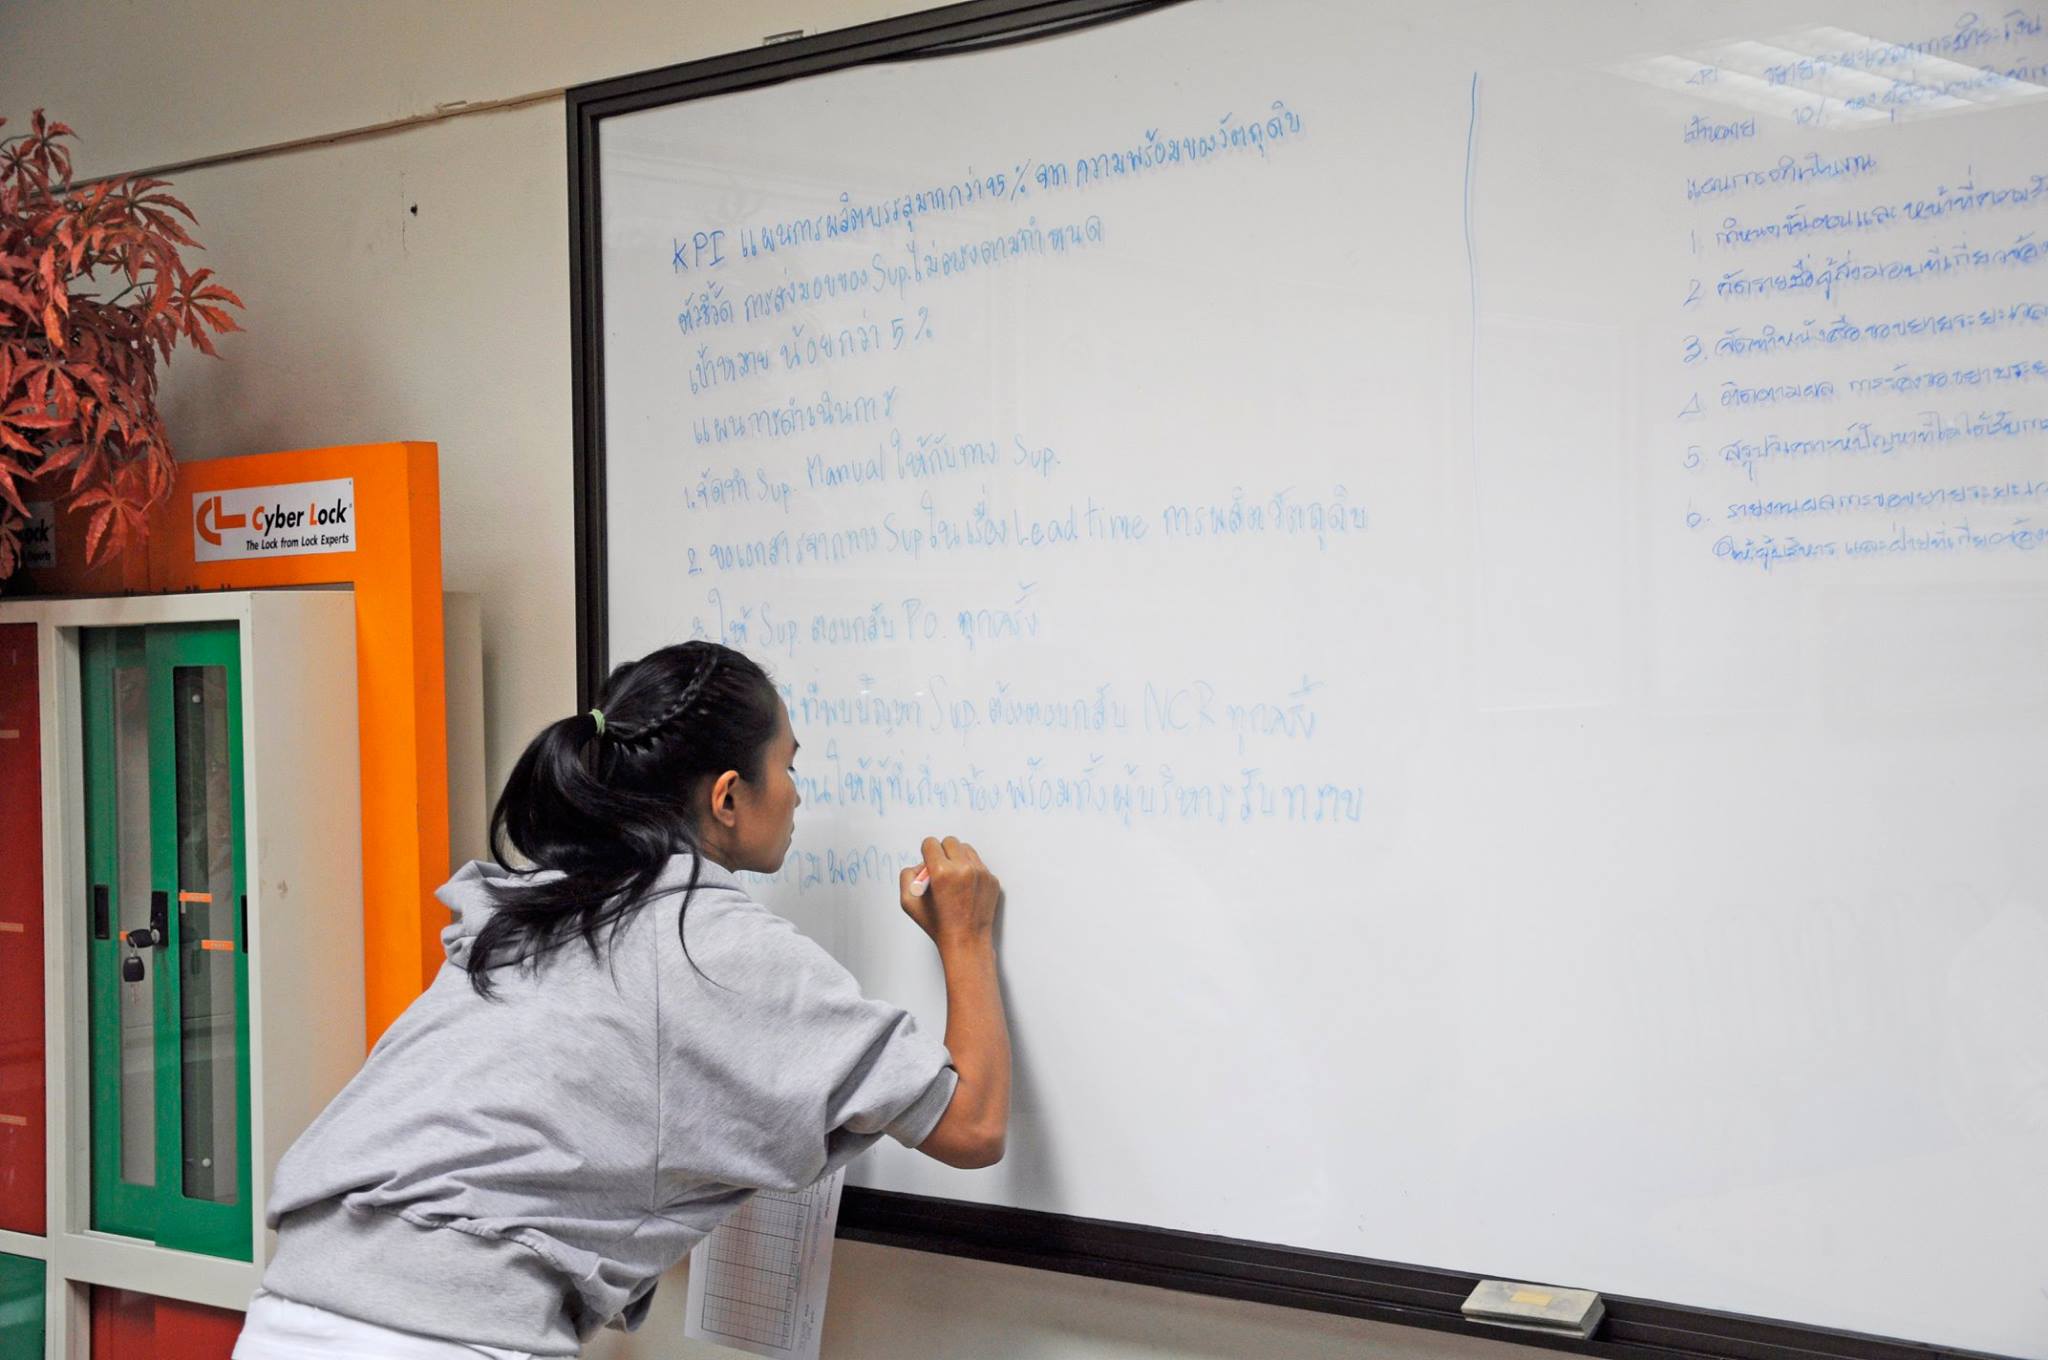 KPI แผนการผลิตบรรลุมากกว่า 95% จาก ความพร้อมของวัตถุดิบ
ตัวชี้วัด การส่งมอบของ Sup. ไม่ตรงตามกำหนด
เป้าหมาย น้อยกว่า 5%
แผนการดำเนินการ
1. จัดทำ Sup. Manual ให้กับทาง Sup.
2. ขอเอกสารจากทาง Sup ในเรื่อง Lead time การผลิตวัตถุดิบ
3. ให้ Sup. ตอบกลับ PO. ทุกครั้ง
ที่พบปัญหา Sup. ต้องตอบกลับ NCR ทุกครั้ง
ให้ผู้ที่เกี่ยวข้องพร้อมทั้งผู้บริหารรับทราบ
ตามผลการ
KPI ขยายระยะเวลาการชำระเงิน
เป้าหมาย 10% ของ ผู้ส่งมอบ
แผนการดำเนินงาน
1. กำหนดขั้นตอนและ หน้าที่ความรับ
2. คัดรายชื่อผู้ส่งมอบที่เกี่ยวข้อง
3. จัดทำหนังสือขอขยายระยะเวลา
4. ติดตามผล การร้องขอขยายระยะ
5. สรุปวิเคราะห์ปัญหาที่ไม่ได้รับการ
6. รายงานผลการขอขยายระยะเวลา
ให้ผู้บริหาร และฝ่ายที่เกี่ยวข้อง
Cyber Lock
The Lock from Lock Experts
ock
ck Experts